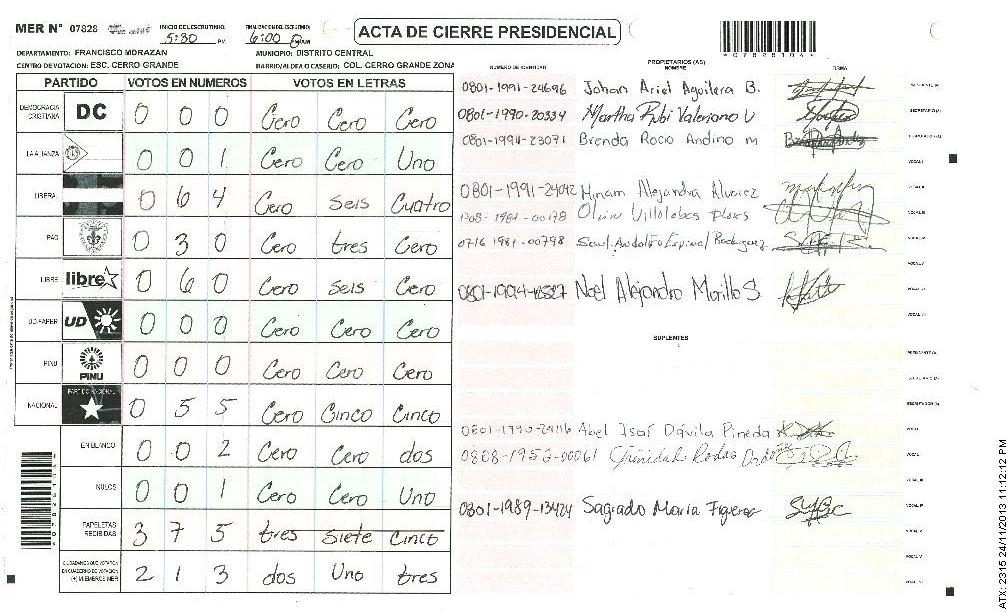 MER N° 07828 INICIO DEL ESCRUTINIO: 5:30 PM. FINALIZACION DEL ESCRUTINIO: 6:00 AM
ACTA DE CIERRE PRESIDENCIAL
*07828104*
DEPARTAMENTO: FRANCISCO MORAZAN MUNICIPIO: DISTRITO CENTRAL
CENTRO DE VOTACION: ESC. CERRO GRANDE BARRIO/ALDEA O CASERIO: COL. CERRO GRANDE ZONA
PARTIDO VOTOS EN NUMEROS VOTOS EN LETRAS
DEMOCRACIA CRISTIANA DC 0 0 0 Cero Cero Cero
LA ALIANZA 0 0 1 Cero Cero Uno
LIBERAL 0 6 4 Cero Seis Cuatro
PAC 0 3 0 Cero tres Cero
LIBRE libre 0 6 0 Cero Seis Cero
UD-FAPER UD 0 0 0 Cero Cero Cero
PINU PINU 0 0 0 Cero Cero Cero
NACIONAL PARTIDO NACIONAL 0 5 5 Cero Cinco Cinco
EN BLANCO 0 0 2 Cero Cero dos
NULOS 0 0 1 Cero Cero Uno
PAPELETAS RECIBIDAS 3 7 5 tres Siete Cinco
CIUDADANOS QUE VOTARON EN CUADERNO DE VOTACION (+) MIEMBROS MER 2 1 3 dos Uno tres
PROPIETARIOS (AS)
NUMERO DE IDENTIDAD NOMBRE FIRMA
0801-1991-24696 Johan Ariel Aguilera B. PRESIDENTE (A)
0801-1990-20334 Martha Rubi Valeriano V SECRETARIO (A)
0801-1994-23071 Brenda Rocio Andino M
VOCAL I
0801-1991-24042 Miriam Alejandra Alvarez VOCAL II
-1981-00178 Villalobos VOCAL III
0716 1981-00798 Espinal Rodriguez VOCAL IV
VOCAL V
0801-1994- Noel Alejandro Morillo S VOCAL VI
VOCAL VII
SUPLENTES
PRESIDENTE (A)
SECRETARIO (A)
ESCRUTADOR (A)
0801-1990-24116 Abel Isai Dávila Pineda VOCAL I
0808-1952-00061 Trinidad Rodas VOCAL II
VOCAL III
0801-1989-13424 Sagrado Maria Figueroa VOCAL IV
VOCAL V
VOCAL VI
ATX: 2315 24/11/2013 11:12:12 PM